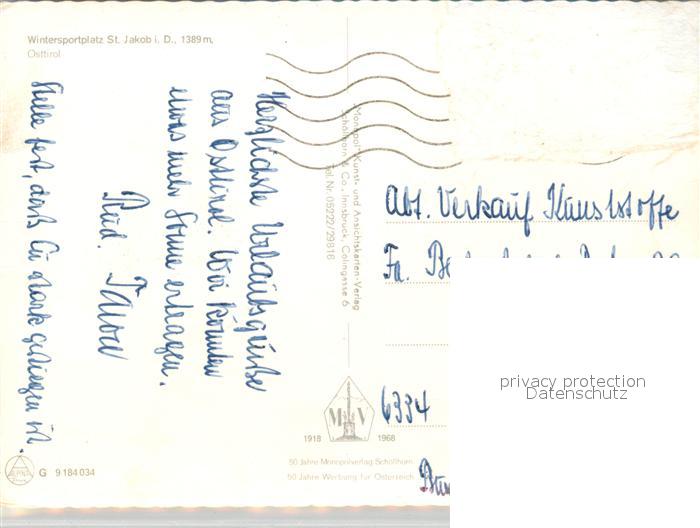 Wintersportplatz St. Jakob i. D., 1389 m,
Osttirol
Herzlichste Urlaubsgrüße
aus Osttirol. Wir könnten
etwas mehr Sonne ertragen.
Rud.
Stelle fest, daß Eu stark gestiegen ist.
„Monopol"-Kunst- und Ansichtskarten-Verlag
Schöllhorn & Co., Innsbruck, Colingasse 6
Tel. Nr. 05222/29816
Abt. Verkauf Kunststoffe
Fa.
6334
1918 MV 1968
50 Jahre Monopolverlag Schöllhorn
50 Jahre Werbung für Österreich
G 9184034
privacy protection
Datenschutz